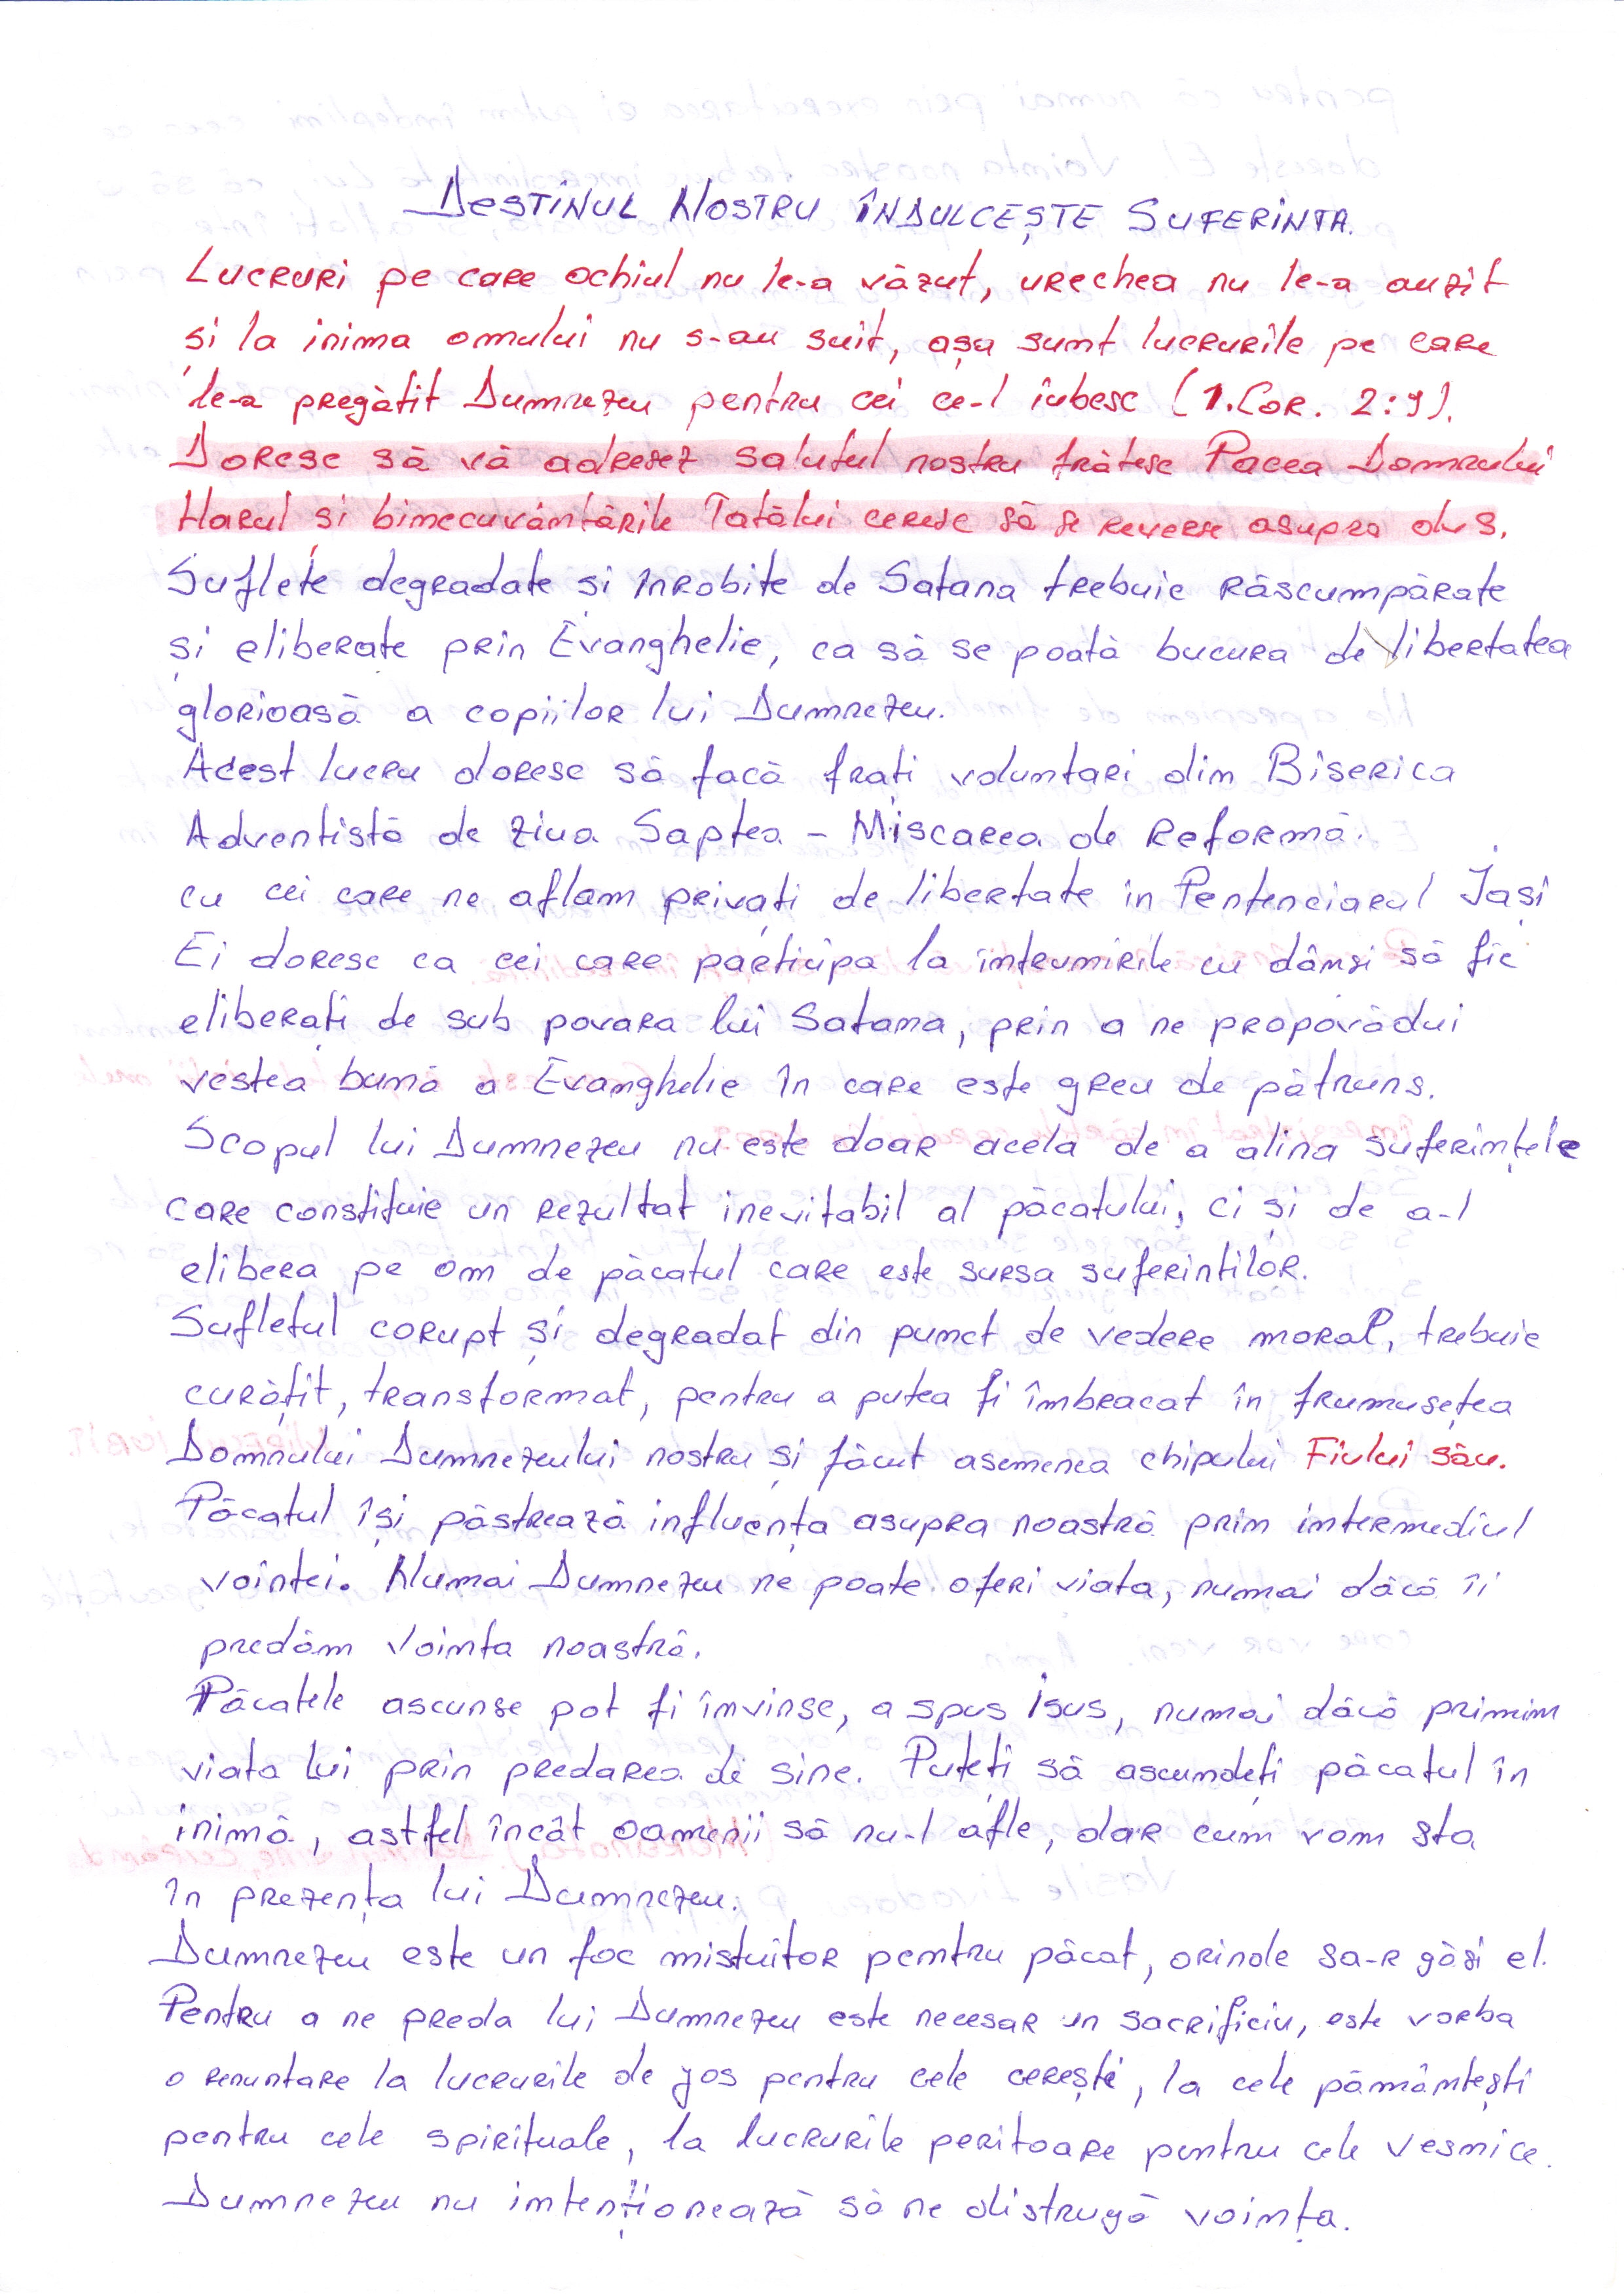 DESTINUL NOSTRU ÎNDULCEȘTE SUFERINTA.
Lucruri pe care ochiul nu le-a văzut, urechea nu le-a auzit
și la inima omului nu s-au suit, așa sunt lucrurile pe care
le-a pregătit Dumnezeu pentru cei ce-l iubesc (1.Cor. 2:9).
Doresc să vă adresez salutul nostru frățesc Pacea Domnului
Harul și binecuvântările Tatălui ceresc să se reverse asupra dvs.
Suflete degradate si înrobite de Satana trebuie răscumpărate
și eliberate prin Evanghelie, ca să se poată bucura de libertatea
glorioasă a copiilor lui Dumnezeu.
Acest lucru doresc să facă frați voluntari din Biserica
Adventistă de Ziua Saptea - Miscarea de Reformă.
cu cei care ne aflam privați de libertate in Pentenciarul Iași
Ei doresc ca cei care participa la intrunirile cu dânsi să fie
eliberați de sub povara lui Satana, prin a ne propovădui
vestea bună a Evanghelie în care este greu de pătruns.
Scopul lui Dumnezeu nu este doar acela de a alina suferințele
care constituie un rezultat inevitabil al păcatului, ci și de a-l
elibera pe om de păcatul care este sursa suferintilor.
Sufletul corupt și degradat din punct de vedere moral, trebuie
curățit, transformat, pentru a putea fi îmbracat în frumusețea
Domnului Dumnezeului nostru și făcut asemenea chipului Fiului său.
Păcatul își păstrează influența asupra noastră prin intermediul
vointei. Numai Dumnezeu ne poate oferi viata, numai dăcă îi
predăm Vointa noastră.
Păcatele ascunse pot fi învinse, a spus Isus, numai dăcă primim
viata Lui prin predarea de sine. Puteți să ascundeți păcatul în
inimă, astfel încât oamenii să nu-l afle, dar cum vom sta
în prezența lui Dumnezeu.
Dumnezeu este un foc mistuitor pentru păcat, orinde sa-r găsi el.
Pentru a ne preda lui Dumnezeu este necesar un sacrificiu, este vorba
o renuntare la lucrurile de jos pentru cele cerești, la cele pământești
pentru cele spirituale, la lucrurile peritoare pentru cele vesnice.
Dumnezeu nu intenționează să ne distrugă voința.